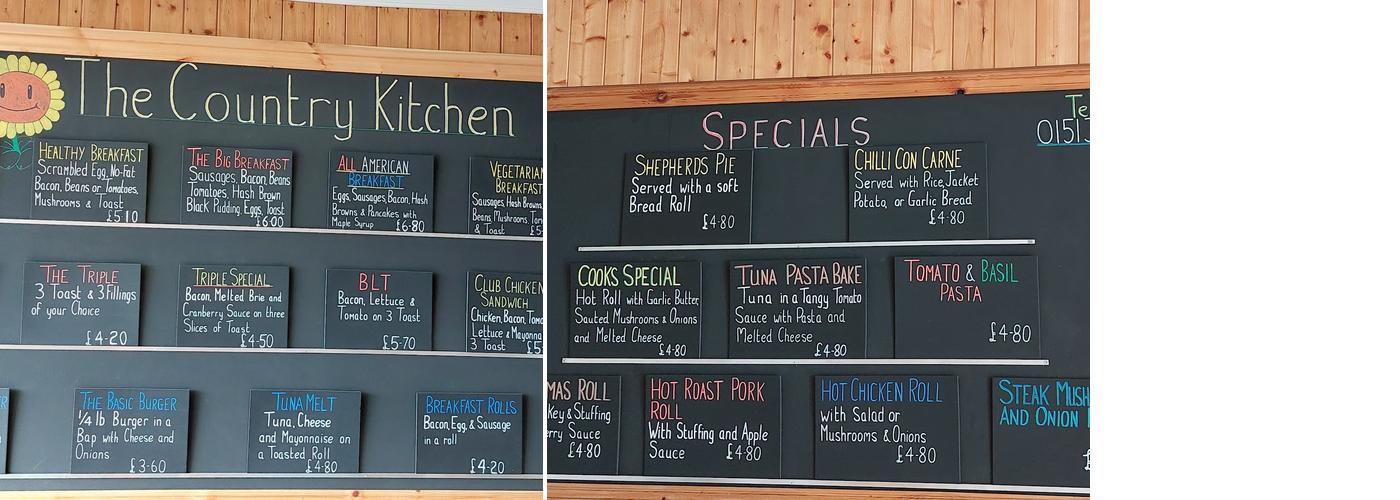 The Country Kitchen
HEALTHY BREAKFAST
Scrambled Egg, No-Fat
Bacon, Beans or Tomatoes,
Mushrooms & Toast
£5.10
THE BIG BREAKFAST
Sausages, Bacon, Beans
Tomatoes, Hash Brown
Black Pudding, Eggs, Toast
£6.00
ALL AMERICAN
BREAKFAST
Eggs, Sausages, Bacon, Hash
Browns & Pancakes with
Maple Syrup £6-80
VEGETARIAN
BREAKFAST
Sausages, Hash Browns,
Beans, Mushrooms,
& Toast
THE TRIPLE
3 Toast & 3 Fillings
of your Choice
£4-20
TRIPLE SPECIAL
Bacon, Melted Brie and
Cranberry Sauce on three
Slices of Toast
£4-50
BLT
Bacon, Lettuce &
Tomato on 3 Toast
£5-70
CLUB CHICKEN
SANDWICH
Chicken, Bacon,
Lettuce &
3 Toast
THE BASIC BURGER
1/4 lb Burger in a
Bap with Cheese and
Onions
£3-60
TUNA MELT
Tuna, Cheese
and Mayonnaise on
a Toasted Roll
£4-80
BREAKFAST ROLLS
Bacon, Egg, & Sausage
in a roll
£4-20
SPECIALS
SHEPHERDS PIE
Served with a soft
Bread Roll
£4-80
CHILLI CON CARNE
Served with Rice, Jacket
Potato, or Garlic Bread
£4-80
COOKS SPECIAL
Hot Roll with Garlic Butter,
Sauted Mushrooms & Onions
and Melted Cheese
£4-80
TUNA PASTA BAKE
Tuna in a Tangy Tomato
Sauce with Pasta and
Melted Cheese
£4-80
TOMATO & BASIL
PASTA
£4-80
ROLL
& Stuffing
Sauce
£4-80
HOT ROAST PORK
ROLL
With Stuffing and Apple
Sauce £4-80
HOT CHICKEN ROLL
with Salad or
Mushrooms & Onions
£4-80
STEAK
AND ONION